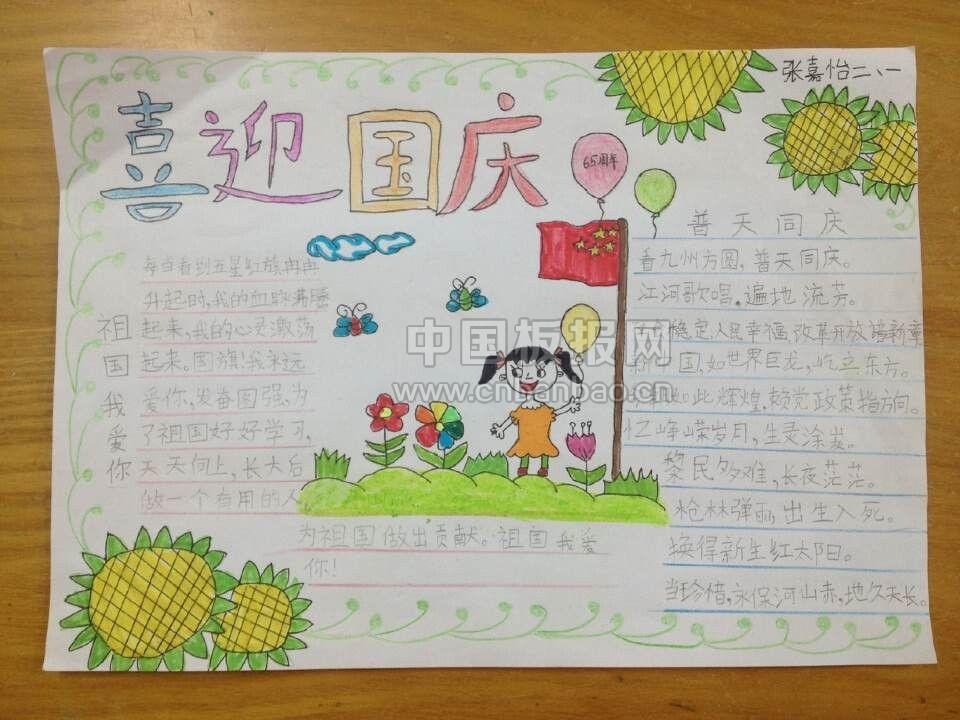 张嘉怡二、一
喜迎国庆
65周年
祖国我爱你
每当看到五星红旗冉冉
升起时,我的血脉沸腾
起来,我的心灵激荡
起来。国旗!我永远
爱你,发奋图强,为
了祖国好好学习,
天天向上,长大后
做一个有用的人
为祖国做出贡献。祖国我爱
你!
普天同庆
看九州方圆,普天同庆。
江河歌唱。遍地流芳。
稳定,人民幸福,改革开放谱新章
新中国,如世界巨龙,屹立东方。
如此辉煌,赖党政策指方向。
忆峥嵘岁月,生灵涂炭。
黎民多难,长夜茫茫。
枪林弹雨,出生入死。
换得新生红太阳。
当珍惜,永保河山赤,地久天长。
中国板报网
www.cnbanbao.cn